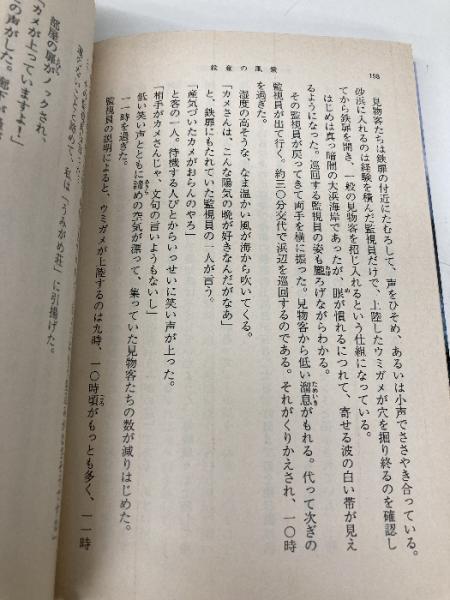 198
殺意の風景
見物客たちは鉄扉の付近にたむろして、声をひそめ、あるいは小声でささやき合っている。
砂浜に入れるのは経験を積んだ監視員だけで、上陸したウミガメが穴を掘り終るのを確認し
てから鉄扉を開き、一般の見物客を招じ入れるという仕組になっている。
はじめは真っ暗闇の大浜海岸であったが、眼が慣れるにつれて、寄せる波の白い帯が見え
るようになった。巡回する監視員の姿も朧ろげながらわかる。
その監視員が戻ってきて両手を横に振った。見物客から低い溜息がもれる。代って次ぎの
監視員が出て行く。約三〇分交代で浜辺を巡回するのである。それがくりかえされ、一〇時
を過ぎた。
湿度の高そうな、なま温かい風が海から吹いてくる。
「カメさんは、こんな陽気の晩が好きなんだがなあ」
と、鉄扉にもたれていた監視員の一人が言う。
「産気づいたカメがおらんのやろ」
と客の一人。待機する人びとからいっせいに笑い声が上った。
「相手がカメさんじゃ、文句の言いようもないし」
低い笑い声とともに諦めの空気が漂って、集っていた見物客たちの数が減りはじめた。
一一時を過ぎた。
監視員の説明によると、ウミガメが上陸するのは九時、一〇時頃がもっとも多く、一一時
私は「うみがめ荘」に引揚げた。
部屋の扉がノックされ、
「カメが上っていますよ！」
の声がした。